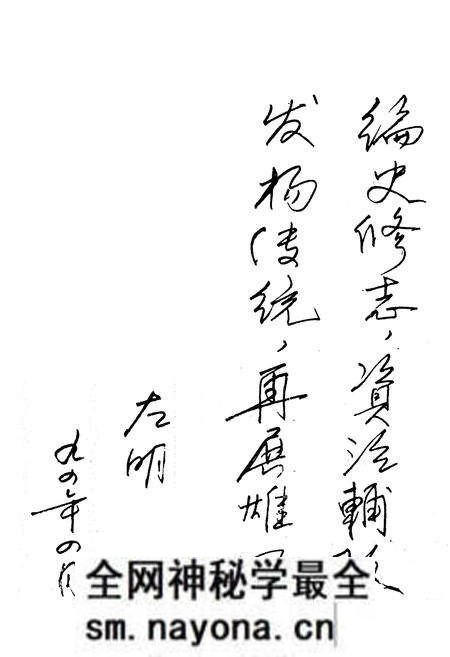 编史修志，資治輔
发杨传统，再展雄
左明
九四年四月
全网神秘学最全
sm.nayona.cn